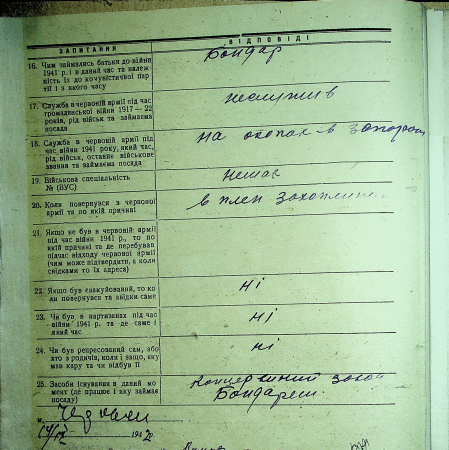 ЗАПИТАННЯ
ВІДПОВІДІ
16. Чим займались батьки до війни
1941 р. і в даний час та належ-
ність їх до комуністичної пар-
тії і з якого часу
Бондар
17. Служба в червоній армії під час
громадянської війни 1917—22
років, рід військ та займаєма
посада
неслужив
18. Служба в червоній армії під
час війни 1941 року, який час,
рід військ, останнє військове
звання та займаєма посада
на окопах в
19. Військова спеціальність
№ (ВУС)
немає
20. Коли повернувся з червоної
армії та по якій причині
в плен
21. Якщо не був в червоній армії
під час війни 1941 р., то по
якій причині та де перебував
підчас відходу червоної армії
(чим може підтвердити, а коли
свідками то їх адреса)
22. Якщо був евакуйований, то ко-
ли повернувся та звідки саме
ні
23. Чи був в партизанах під час
війни 1941 р. та де саме і
який час
ні
24. Чи був репресований сам, або
хто з родичів, коли і защо, яку
мав кару та чи відбув її
ні
25. Засоби існування в даний мо-
мент (де працює і яку займає
посаду)
консервний завод
Бондарем
м.
194